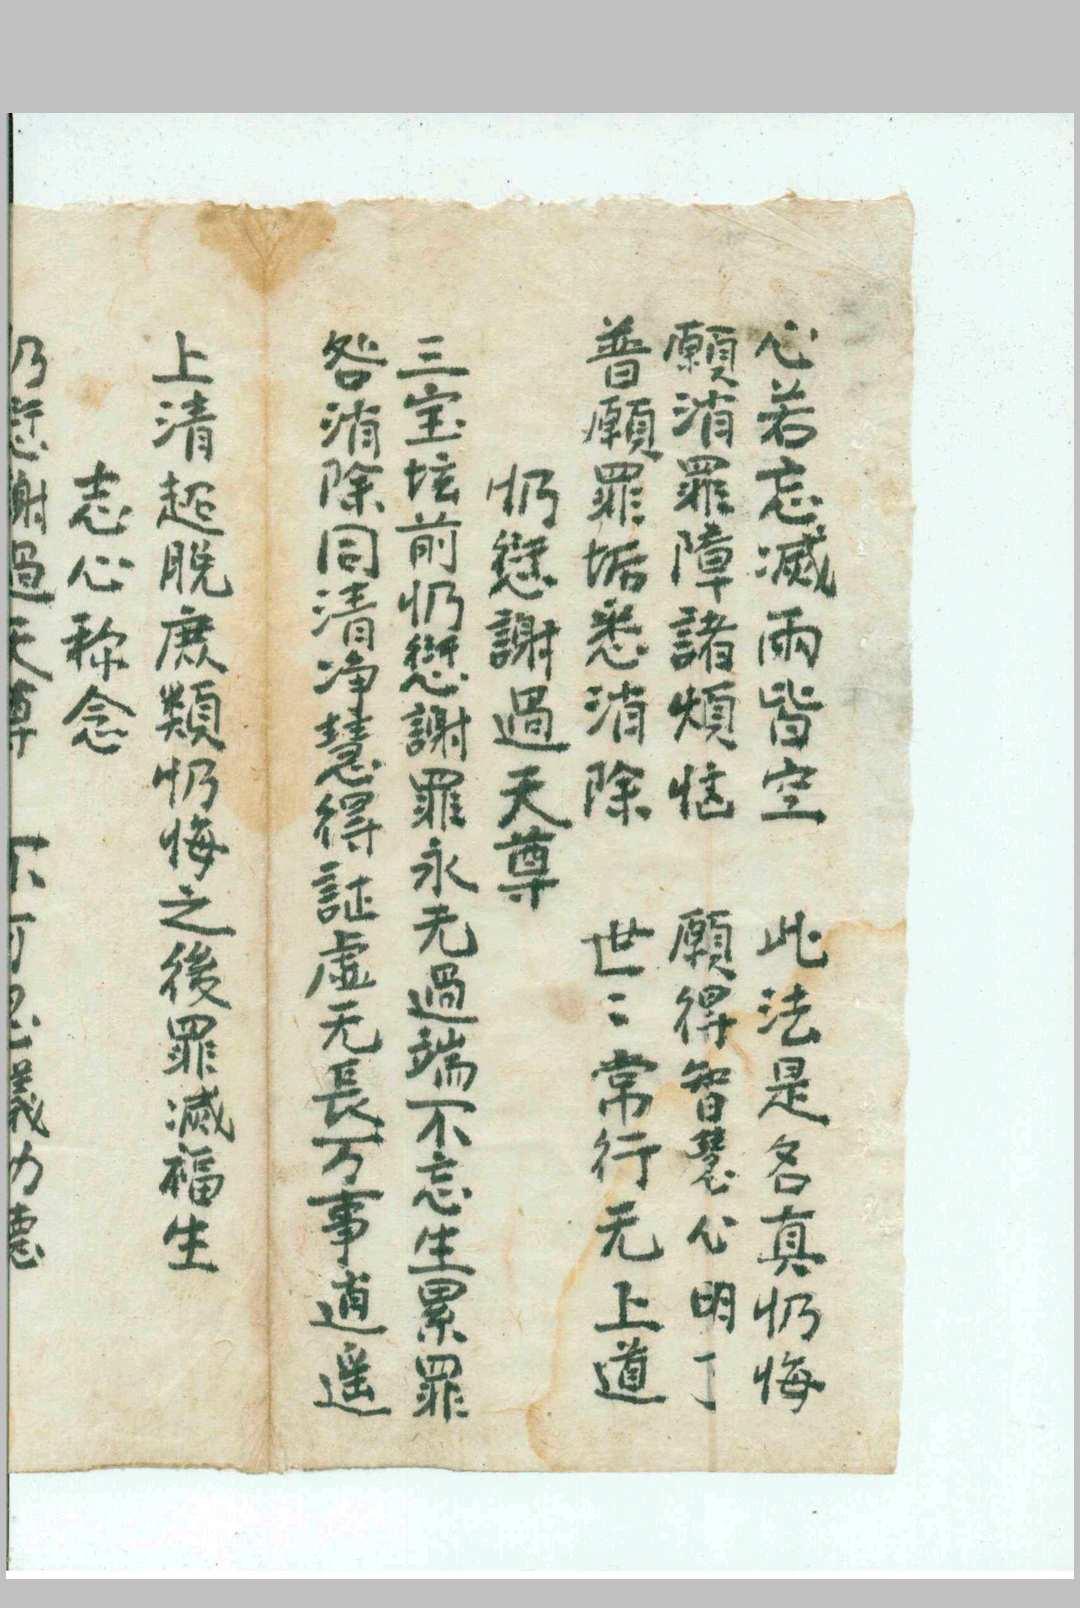 心若忘滅兩皆空　此法是名真忉悔
願消罪障諸煩惱　願得智慧心明了
普願罪垢悉消除　世〻常行无上道
忉愆謝過天尊
三宝坛前忉愆謝罪永无過端不忘生累罪
咎消除同清净慧得証虛无長万事逍遥
上清超脱庶類忉悔之後罪滅福生
志心称念
愆謝過天尊　不可思議功德